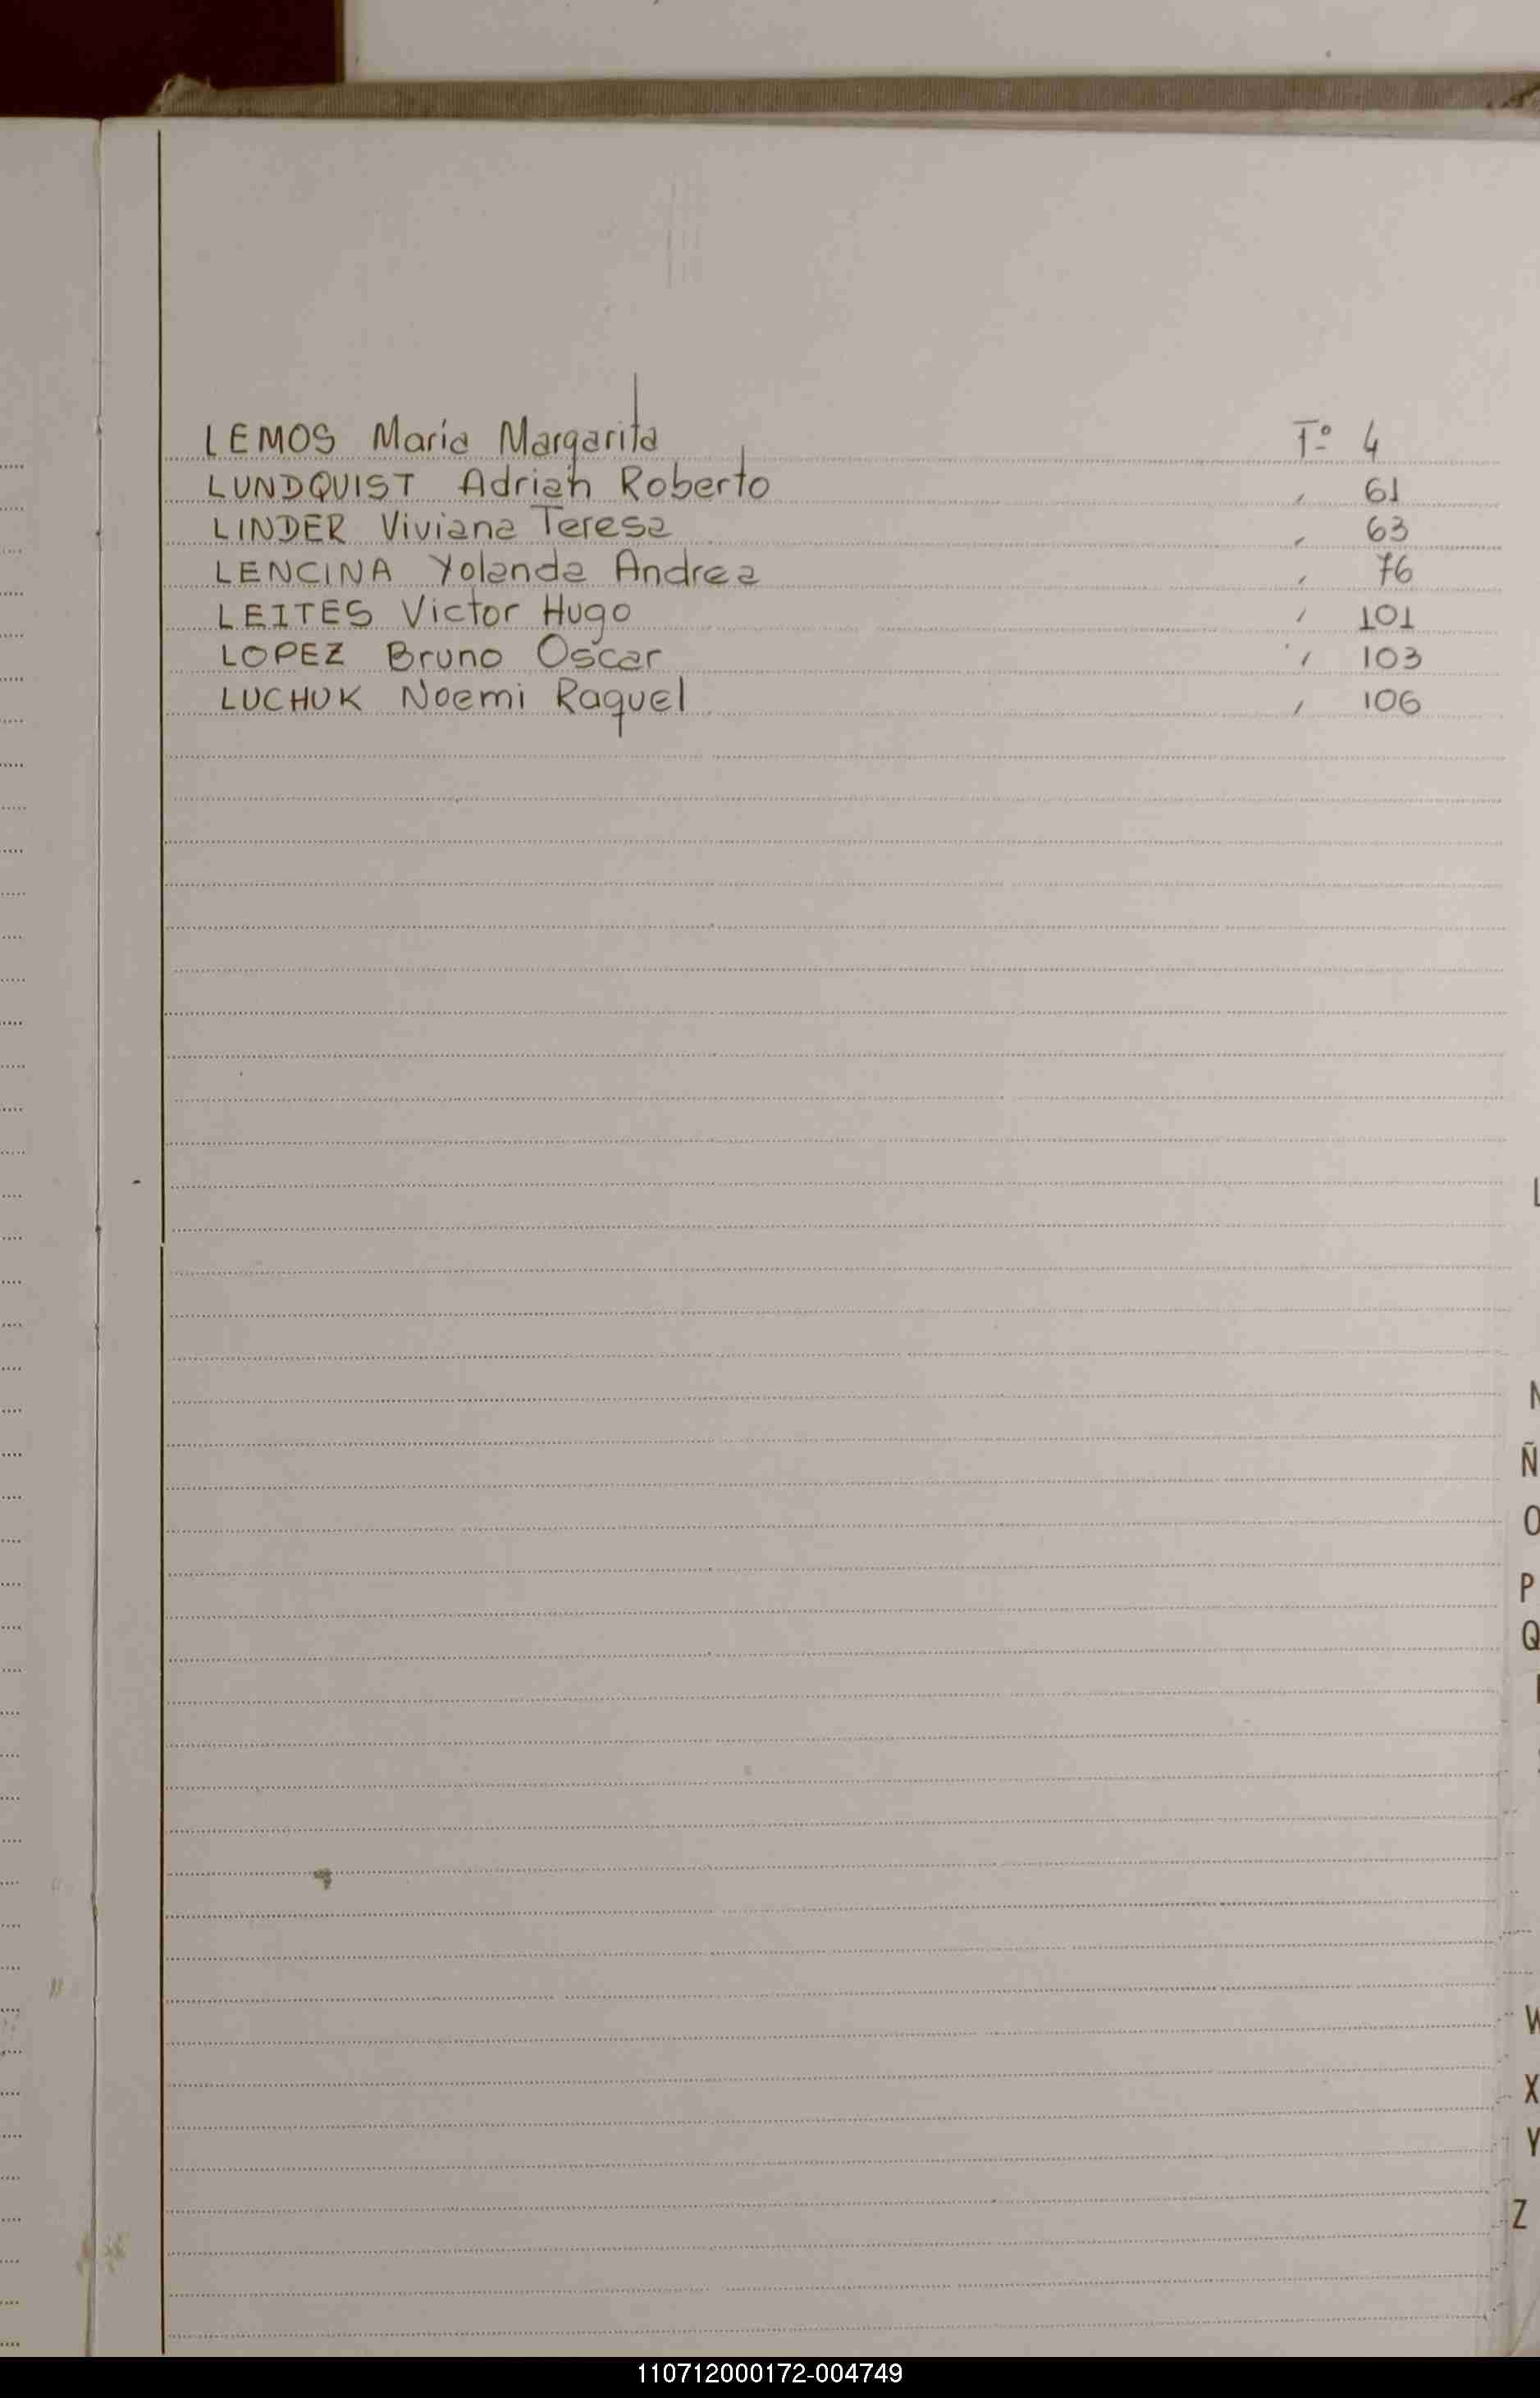 LEMOS María Margarita Tº 4
LUNDQUIST Adrián Roberto ,, 61
LINDER Viviana Teresa ,, 63
LENCINA Yolanda Andrea ,, 76
LEITES Victor Hugo ,, 101
LOPEZ Bruno Oscar ,, 103
LUCHUK Noemi Raquel ,, 106
L
N
Ñ
O
P
Q
W
X
Y
Z
110712000172-004749